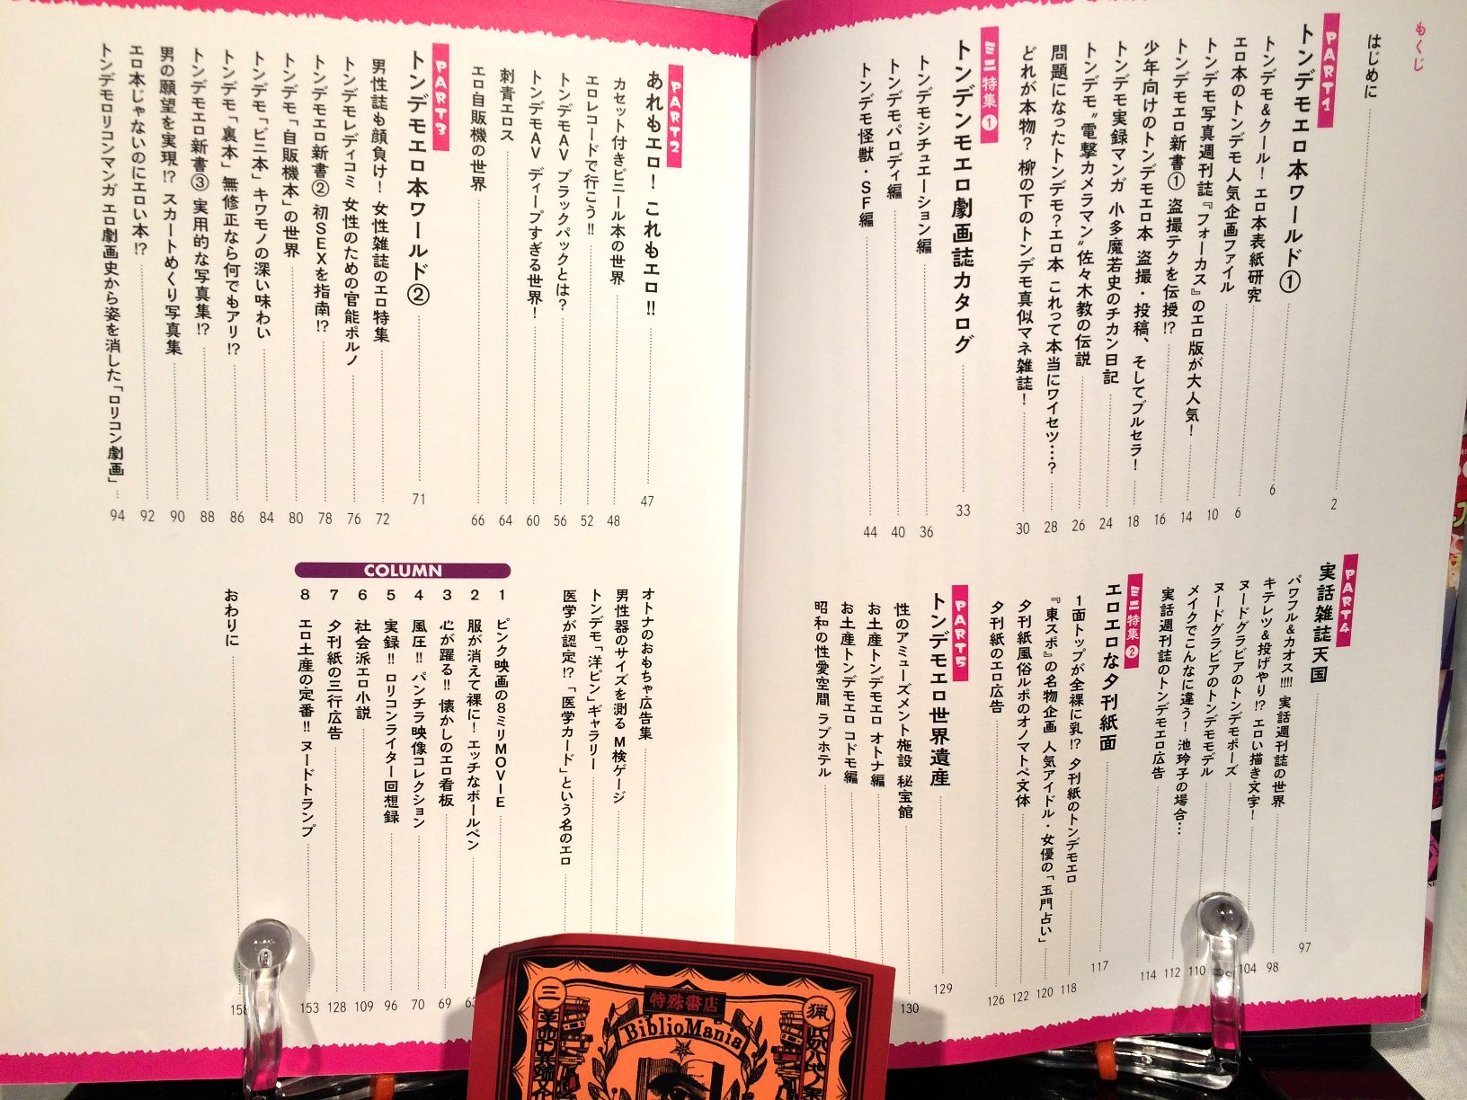 もくじ
はじめに 2
PART1
トンデモエロ本ワールド①
トンデモ&クール！ エロ本表紙研究 6
エロ本のトンデモ人気企画ファイル 6
トンデモ写真週刊誌『フォーカス』のエロ版が大人気！ 10
トンデモエロ新書① 盗撮テクを伝授!? 14
少年向けのトンデモエロ本 盗撮・投稿、そしてブルセラ！ 16
トンデモ実録マンガ 小多魔若史のチカン日記 18
トンデモ"電撃カメラマン"佐々木教の伝説 24
問題になったトンデモ?エロ本 これって本当にワイセツ…？ 26
どれが本物？ 柳の下のトンデモ真似マネ雑誌！ 28
30
ミニ特集①
トンデンモエロ劇画誌カタログ 33
トンデモシチュエーション編 36
トンデモパロディ編 40
トンデモ怪獣・SF編 44
PART2
あれもエロ！ これもエロ!! 47
カセット付きビニール本の世界 48
エロレコードで行こう!! 52
トンデモAV ブラックパックとは？ 56
トンデモAV ディープすぎる世界！ 60
刺青エロス 64
エロ自販機の世界 66
PART3
トンデモエロ本ワールド② 71
男性誌も顔負け！ 女性雑誌のエロ特集 72
トンデモレディコミ 女性のための官能ポルノ 76
トンデモエロ新書② 初SEXを指南!? 78
トンデモ「自販機本」の世界 80
トンデモ「ビニ本」 キワモノの深い味わい 84
トンデモ「裏本」 無修正なら何でもアリ!? 86
トンデモエロ新書③ 実用的な写真集!? 88
男の願望を実現!? スカートめくり写真集 90
エロ本じゃないのにエロい本!? 92
トンデモロリコンマンガ エロ劇画史から姿を消した「ロリコン劇画」 94
PART4
実話雑誌天国 97
パワフル&カオス!!!! 実話週刊誌の世界 98
キテレツ&投げやり!? エロい描き文字！ 104
ヌードグラビアのトンデモポーズ
ヌードグラビアのトンデモモデル 110
メイクでこんなに違う！ 池玲子の場合… 112
実話週刊誌のトンデモエロ広告 114
ミニ特集②
エロエロな夕刊紙面 117
1面トップが全裸に乳!? 夕刊紙のトンデモエロ 118
『東スポ』の名物企画 人気アイドル・女優の「玉門占い」 120
夕刊紙風俗ルポのオノマトペ文体 122
夕刊紙のエロ広告 126
PART5
トンデモエロ世界遺産 129
性のアミューズメント施設 秘宝館 130
お土産トンデモエロ オトナ編
お土産トンデモエロ コドモ編
昭和の性愛空間 ラブホテル
オトナのおもちゃ広告集
男性器のサイズを測る M検ゲージ
トンデモ「洋ピン」ギャラリー
医学が認定!? 「医学カード」という名のエロ
COLUMN
1 ピンク映画の8ミリMOVIE
2 服が消えて裸に！ エッチなボールペン
3 心が躍る!! 懐かしのエロ看板 69
4 風圧!! パンチラ映像コレクション 70
5 実録!! ロリコンライター回想録 96
6 社会派エロ小説 109
7 夕刊紙の三行広告 128
8 エロ土産の定番!! ヌードトランプ 153
おわりに 158
特殊書店
BiblioMania